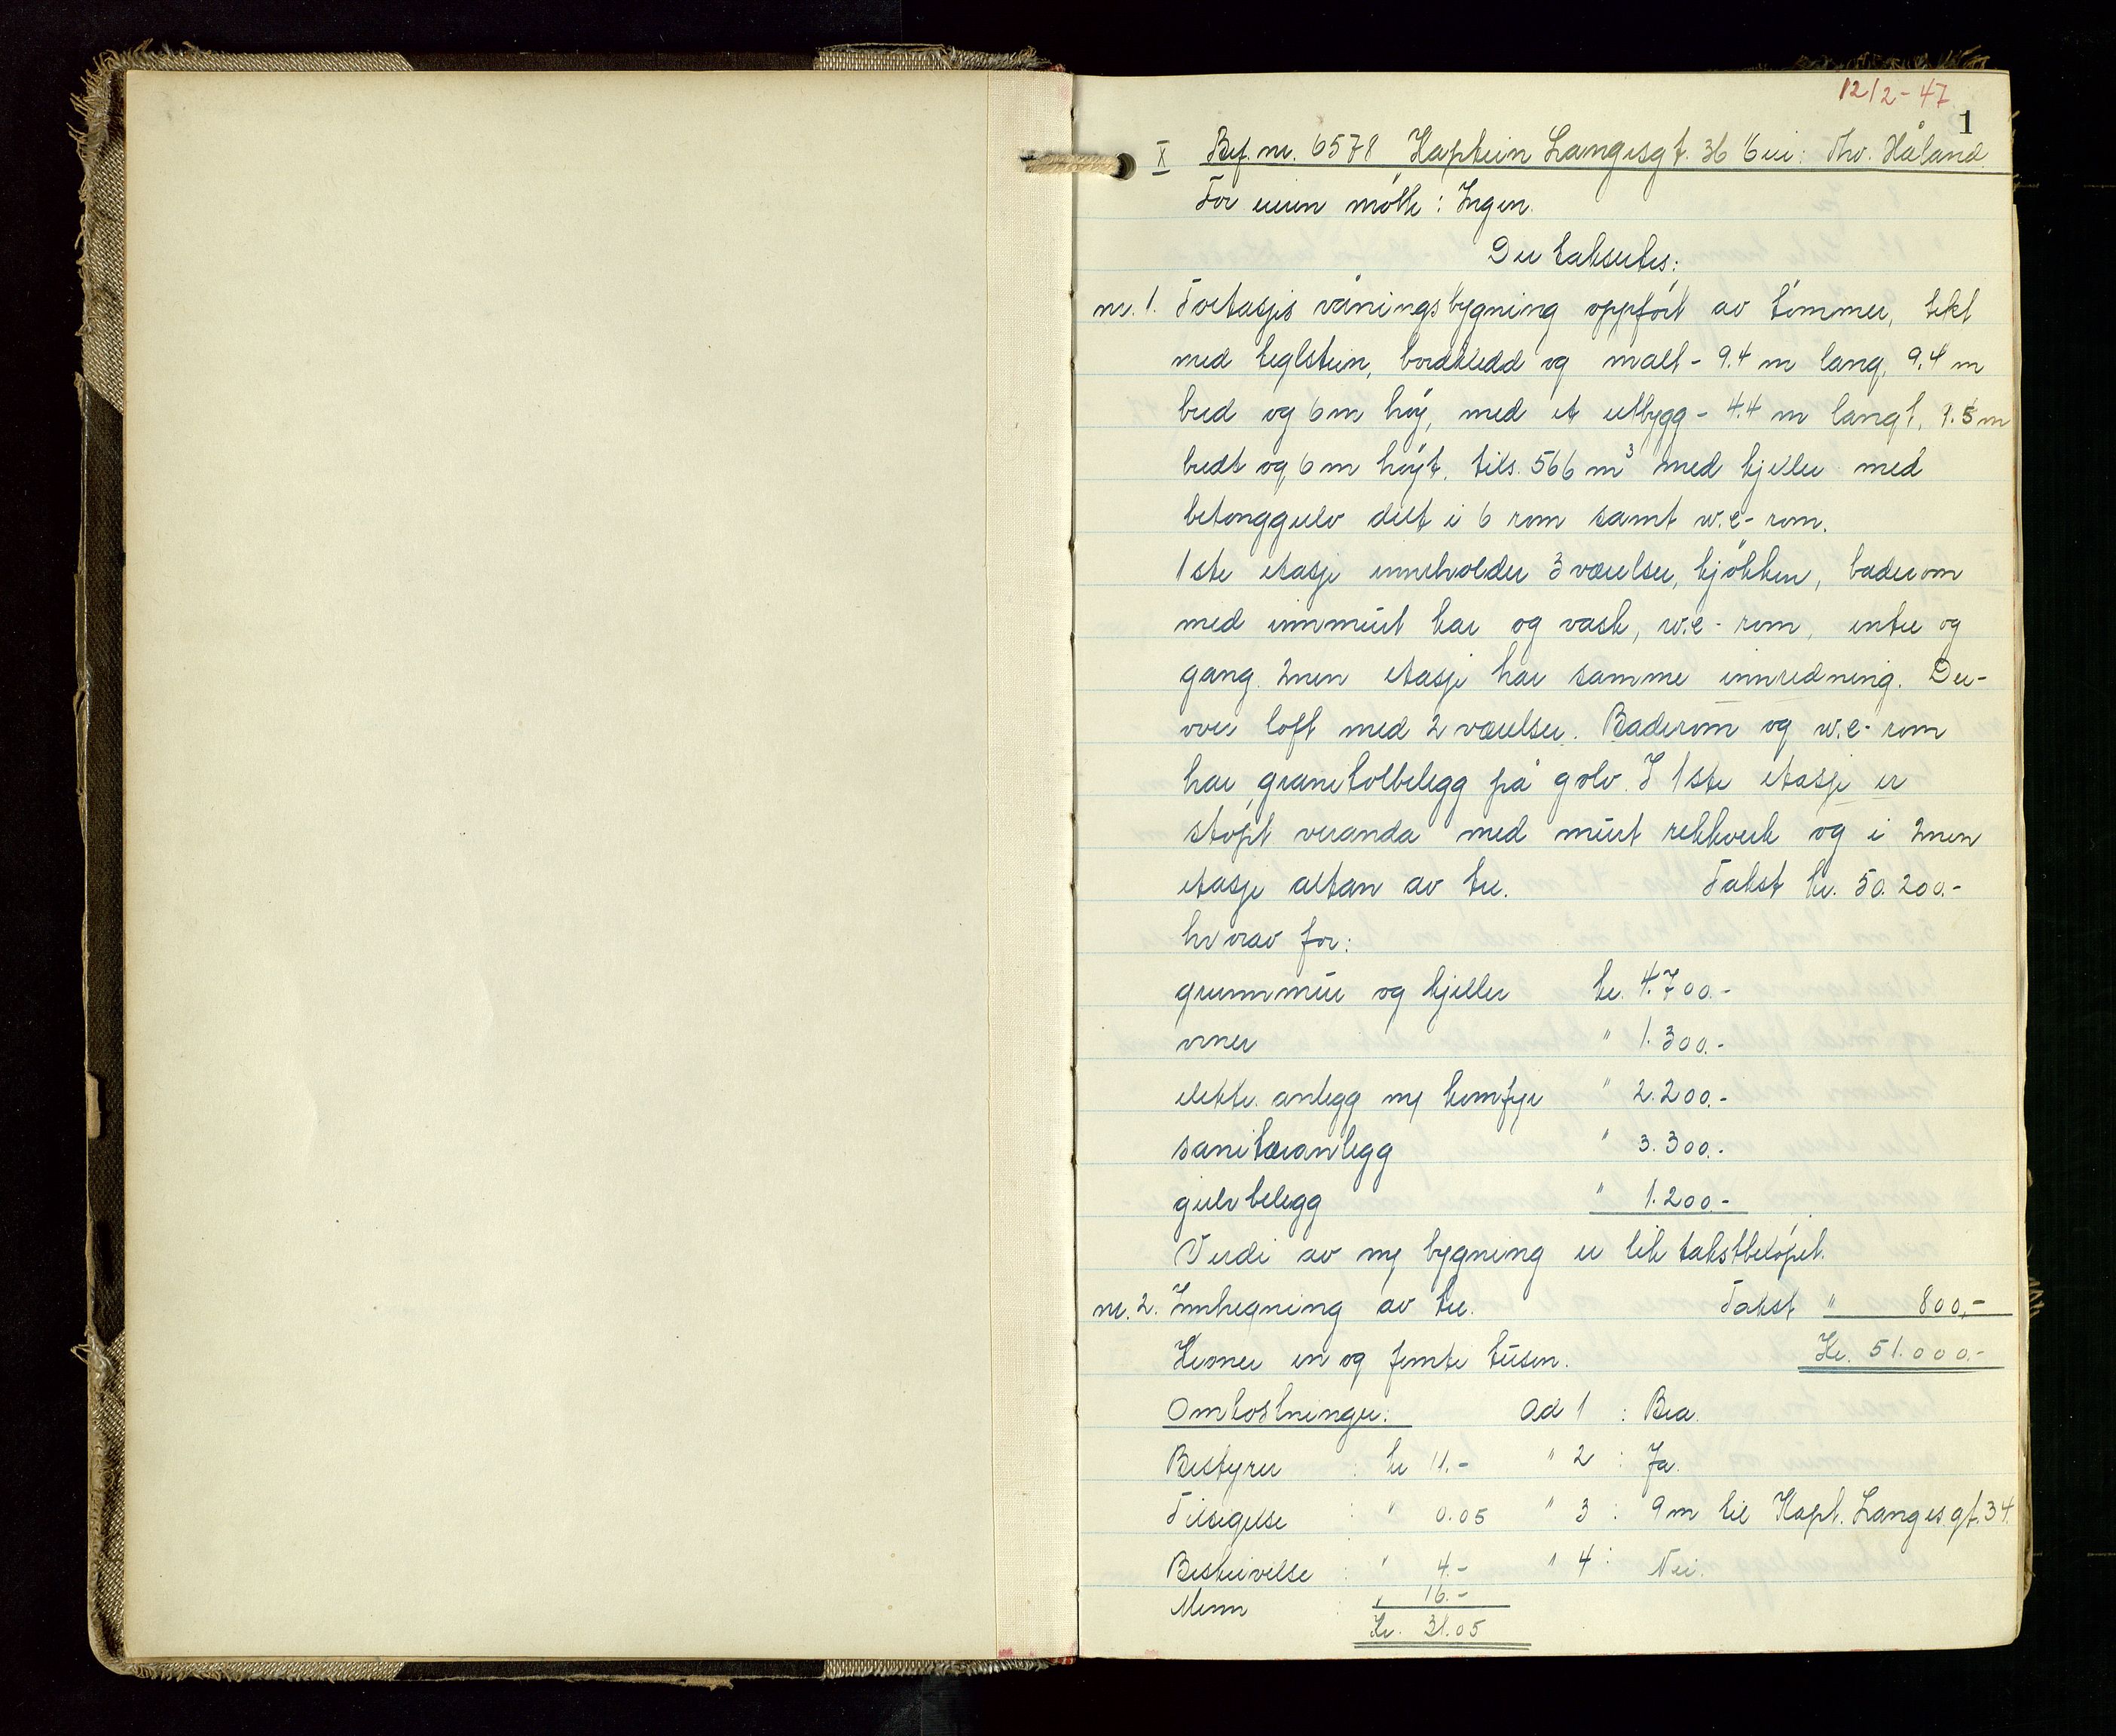 12/2-47
1
X Bef. nr. 6578 Kaptein Langesgt. 36 Eier: Thv. Håland.
For eieren møtte: Ingen.
Der taksertes:
nr. 1. Toetasjes våningsbygning oppført av tømmer, tekt
med teglstein, bordkledd og malt - 9.4 m lang, 9.4 m
bred og 6 m høy, med et utbygg - 4.4 m langt, 1.5 m
bredt og 6 m høyt, tils. 566 m³ med kjeller med
betonggulv delt i 6 rom samt w.c-rom.
1ste etasje inneholder 3 værelser, kjøkken, baderom
med innmurt kar og vask, w.c-rom, entre og
gang. 2nen etasje har samme innredning. Der-
over loft med 2 værelser. Baderom og w.c-rom
har granitolbelegg på golv. I 1ste etasje er
støpt veranda med murt rekkverk og i 2nen
etasje altan av tre. Takst kr. 50.200.-
hvorav for:
grunnmur og kjeller kr. 4.700.-
ovner " 1.300.-
elektr. anlegg m/ komfyr " 2.200.-
sanitæranlegg " 3.300.-
gulvbelegg " 1.200.-
Verdi av ny bygning er lik takstbeløpet.
nr. 2. Innhegning av tre. Takst " 800,-
Kroner en og femti tusen. Kr. 51.000.-
Omkostninger: Ad 1 : Bra.
Bestyrer : kr 11.- " 2 : Ja.
Tilsigelse : " 0.05 " 3 : 9 m til Kapt. Langesgt. 34.
Beskrivelse : " 4.- " 4 : Nei.
Menn : " 16.-
Kr. 31.05